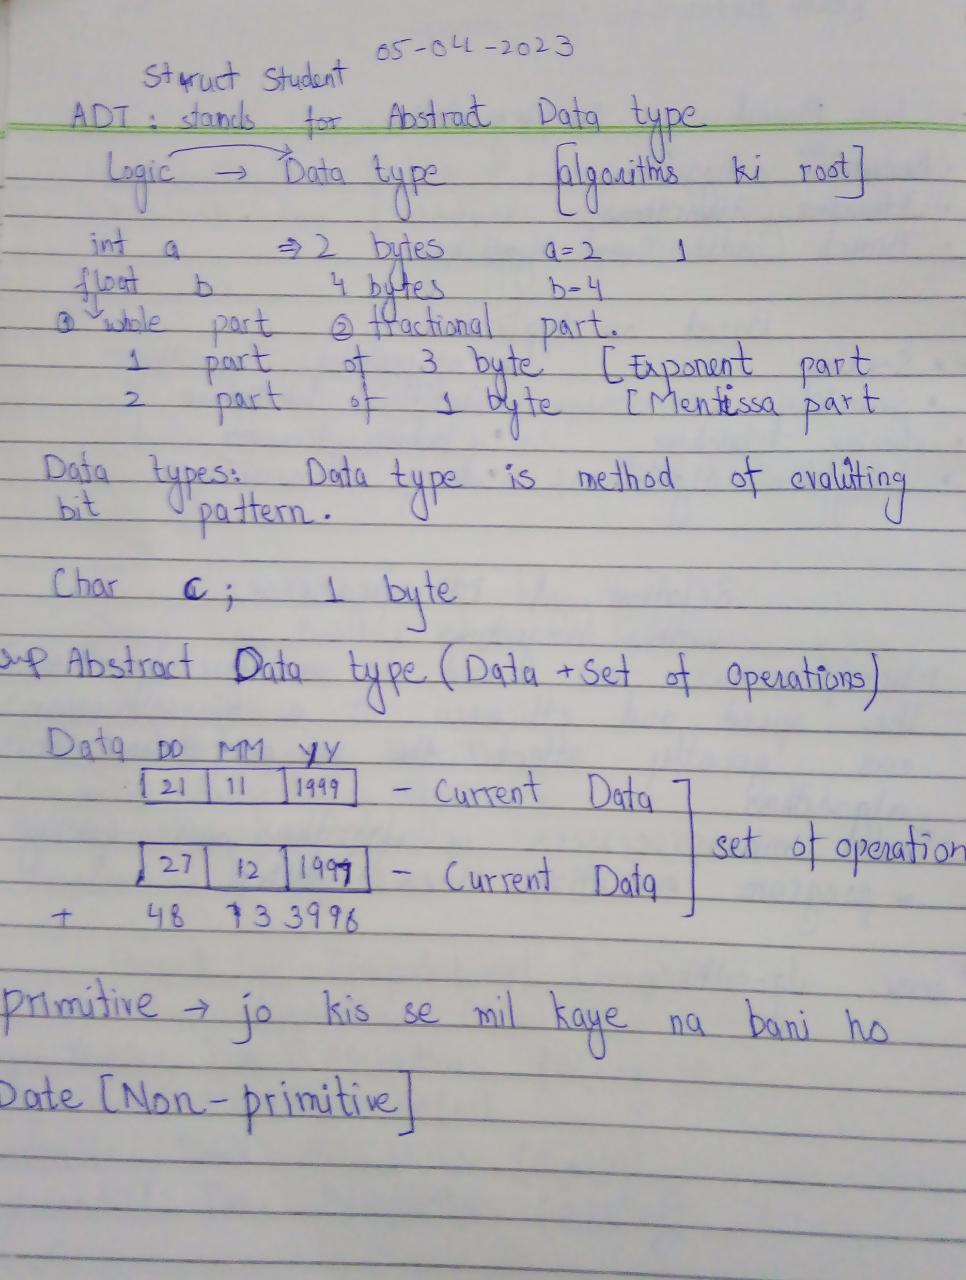 05-04-2023
Struct Student
ADT : stands for Abstract Data type
Logic → Data type [algorithms ki root]
int a ⇒ 2 bytes a=2 1
float b 4 bytes b-4
① whole part ② fractional part.
1 part of 3 byte [Exponent part
2 part of 1 byte [Mentissa part
Data types: Data type is method of evaluting
bit pattern.
Char c; 1 byte
Abstract Data type (Data + Set of Operations)
Data DD MM YY
21 11 1999 - Current Data
set of operation
27 12 1997 - Current Data
+ 48 23 3996
Primitive → jo kis se mil kaye na bani ho
Date [Non-primitive]